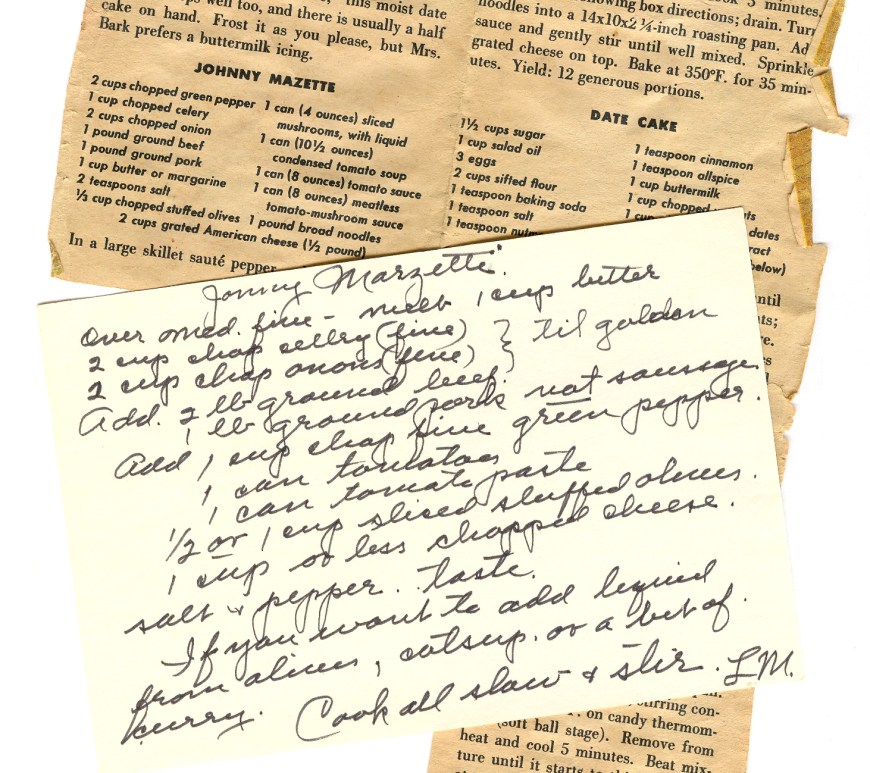 this moist date
well too, and there is usually a half
cake on hand. Frost it as you please, but Mrs.
Bark prefers a buttermilk icing.
JOHNNY MAZETTE
2 cups chopped green pepper
1 cup chopped celery
2 cups chopped onion
1 pound ground beef
1 pound ground pork
1 cup butter or margarine
2 teaspoons salt
½ cup chopped stuffed olives
1 can (4 ounces) sliced
mushrooms, with liquid
1 can (10½ ounces)
condensed tomato soup
1 can (8 ounces) tomato sauce
1 can (8 ounces) meatless
tomato-mushroom sauce
1 pound broad noodles
2 cups grated American cheese (½ pound)
In a large skillet sauté pepper
box directions; drain. Turn
noodles into a 14x10x2¼-inch roasting pan. Ad
sauce and gently stir until well mixed. Sprinkle
grated cheese on top. Bake at 350°F. for 35 min-
utes. Yield: 12 generous portions.
DATE CAKE
1½ cups sugar
1 cup salad oil
3 eggs
2 cups sifted flour
1 teaspoon baking soda
1 teaspoon salt
1 teaspoon
1 teaspoon cinnamon
1 teaspoon allspice
1 cup buttermilk
1 cup chopped
dates
below)
Jonny Marzetti
Over med. fire - melt 1 cup butter
2 cup chap cellry (fine) } til golden
2 cup chap onons (fine)
Add. 2 lb ground beef.
1 lb ground pork not sausage
Add 1 cup chap fine green pepper.
1 can tomatoes
1 can tomato paste
1/2 or 1 cup sliced stuffed olives.
1 cup or less chopped cheese.
salt & pepper. taste.
If you want to add liquid
from olives, catsup. or a bit of.
kurry. Cook all slow & stir. LM.
stirring con-
on candy thermom-
(soft ball stage). Remove from
heat and cool 5 minutes. Beat mix-
ture until it starts to